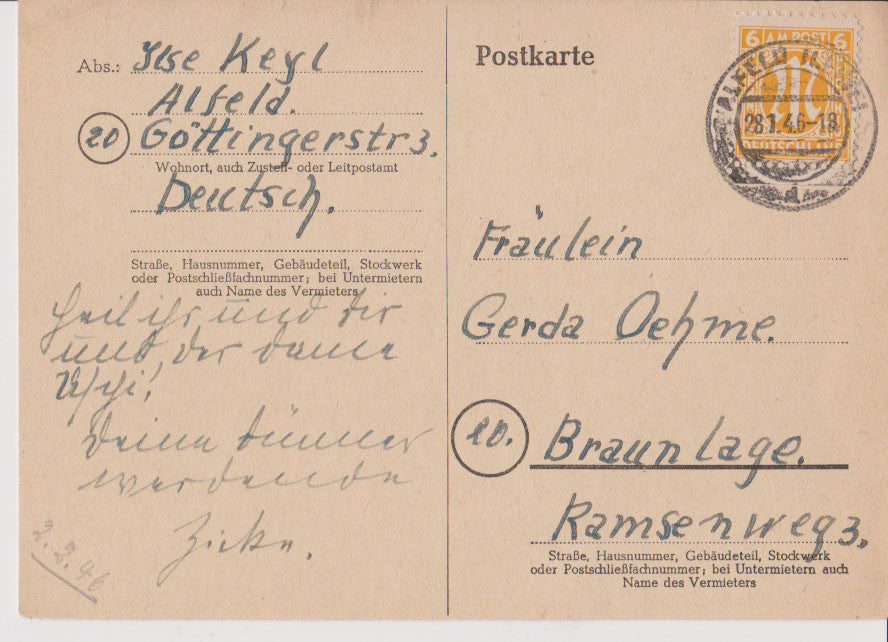 Abs.: Ilse Keyl
Alfeld.
20 Göttingerstr 3.
Wohnort, auch Zustell- oder Leitpostamt
Deutsch.
Straße, Hausnummer, Gebäudeteil, Stockwerk
oder Postschließfachnummer; bei Untermietern
auch Name des Vermieters
Heil ihr und dir
und der
Uschi!
Deine dünner
werdende
Zicke.
2.2.46
Postkarte
6 AM POST 6
M
DEUTSCHLAND
ALFELD
28.1.46-18
a
Fräulein
Gerda Oehme.
20. Braunlage.
Ramsenweg 3.
Straße, Hausnummer, Gebäudeteil, Stockwerk
oder Postschließfachnummer; bei Untermietern auch
Name des Vermieters